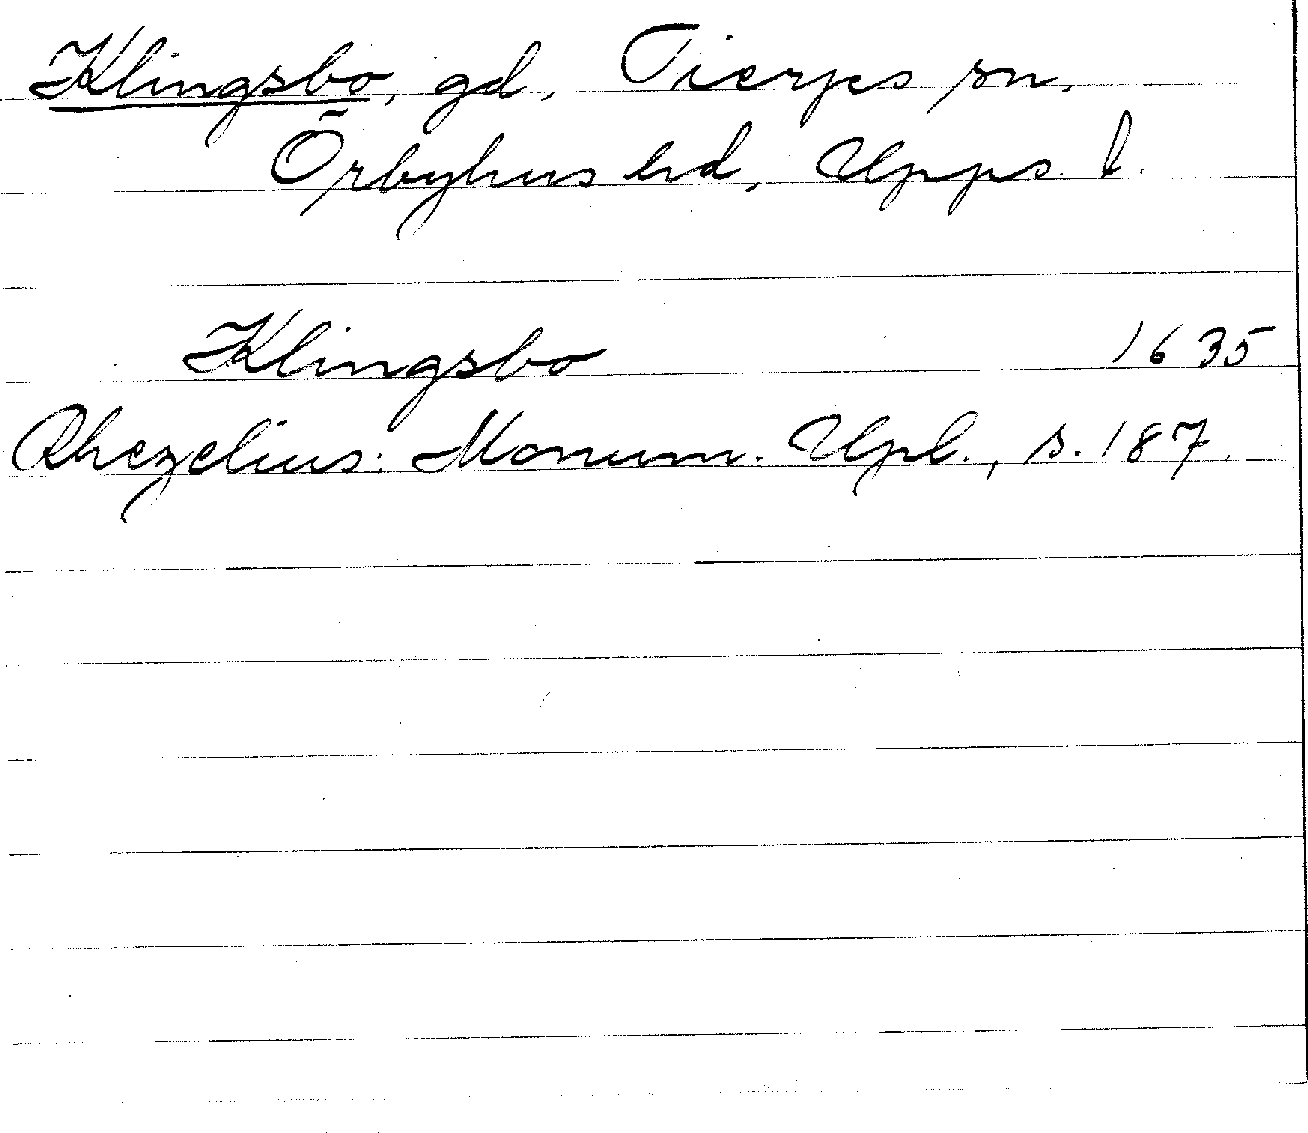 Klingsbo, gd, Tierps sn.
Örbyhus hd, Upps. l.
Klingsbo 1635
Rhezelius: Monum. Upl., s. 187.